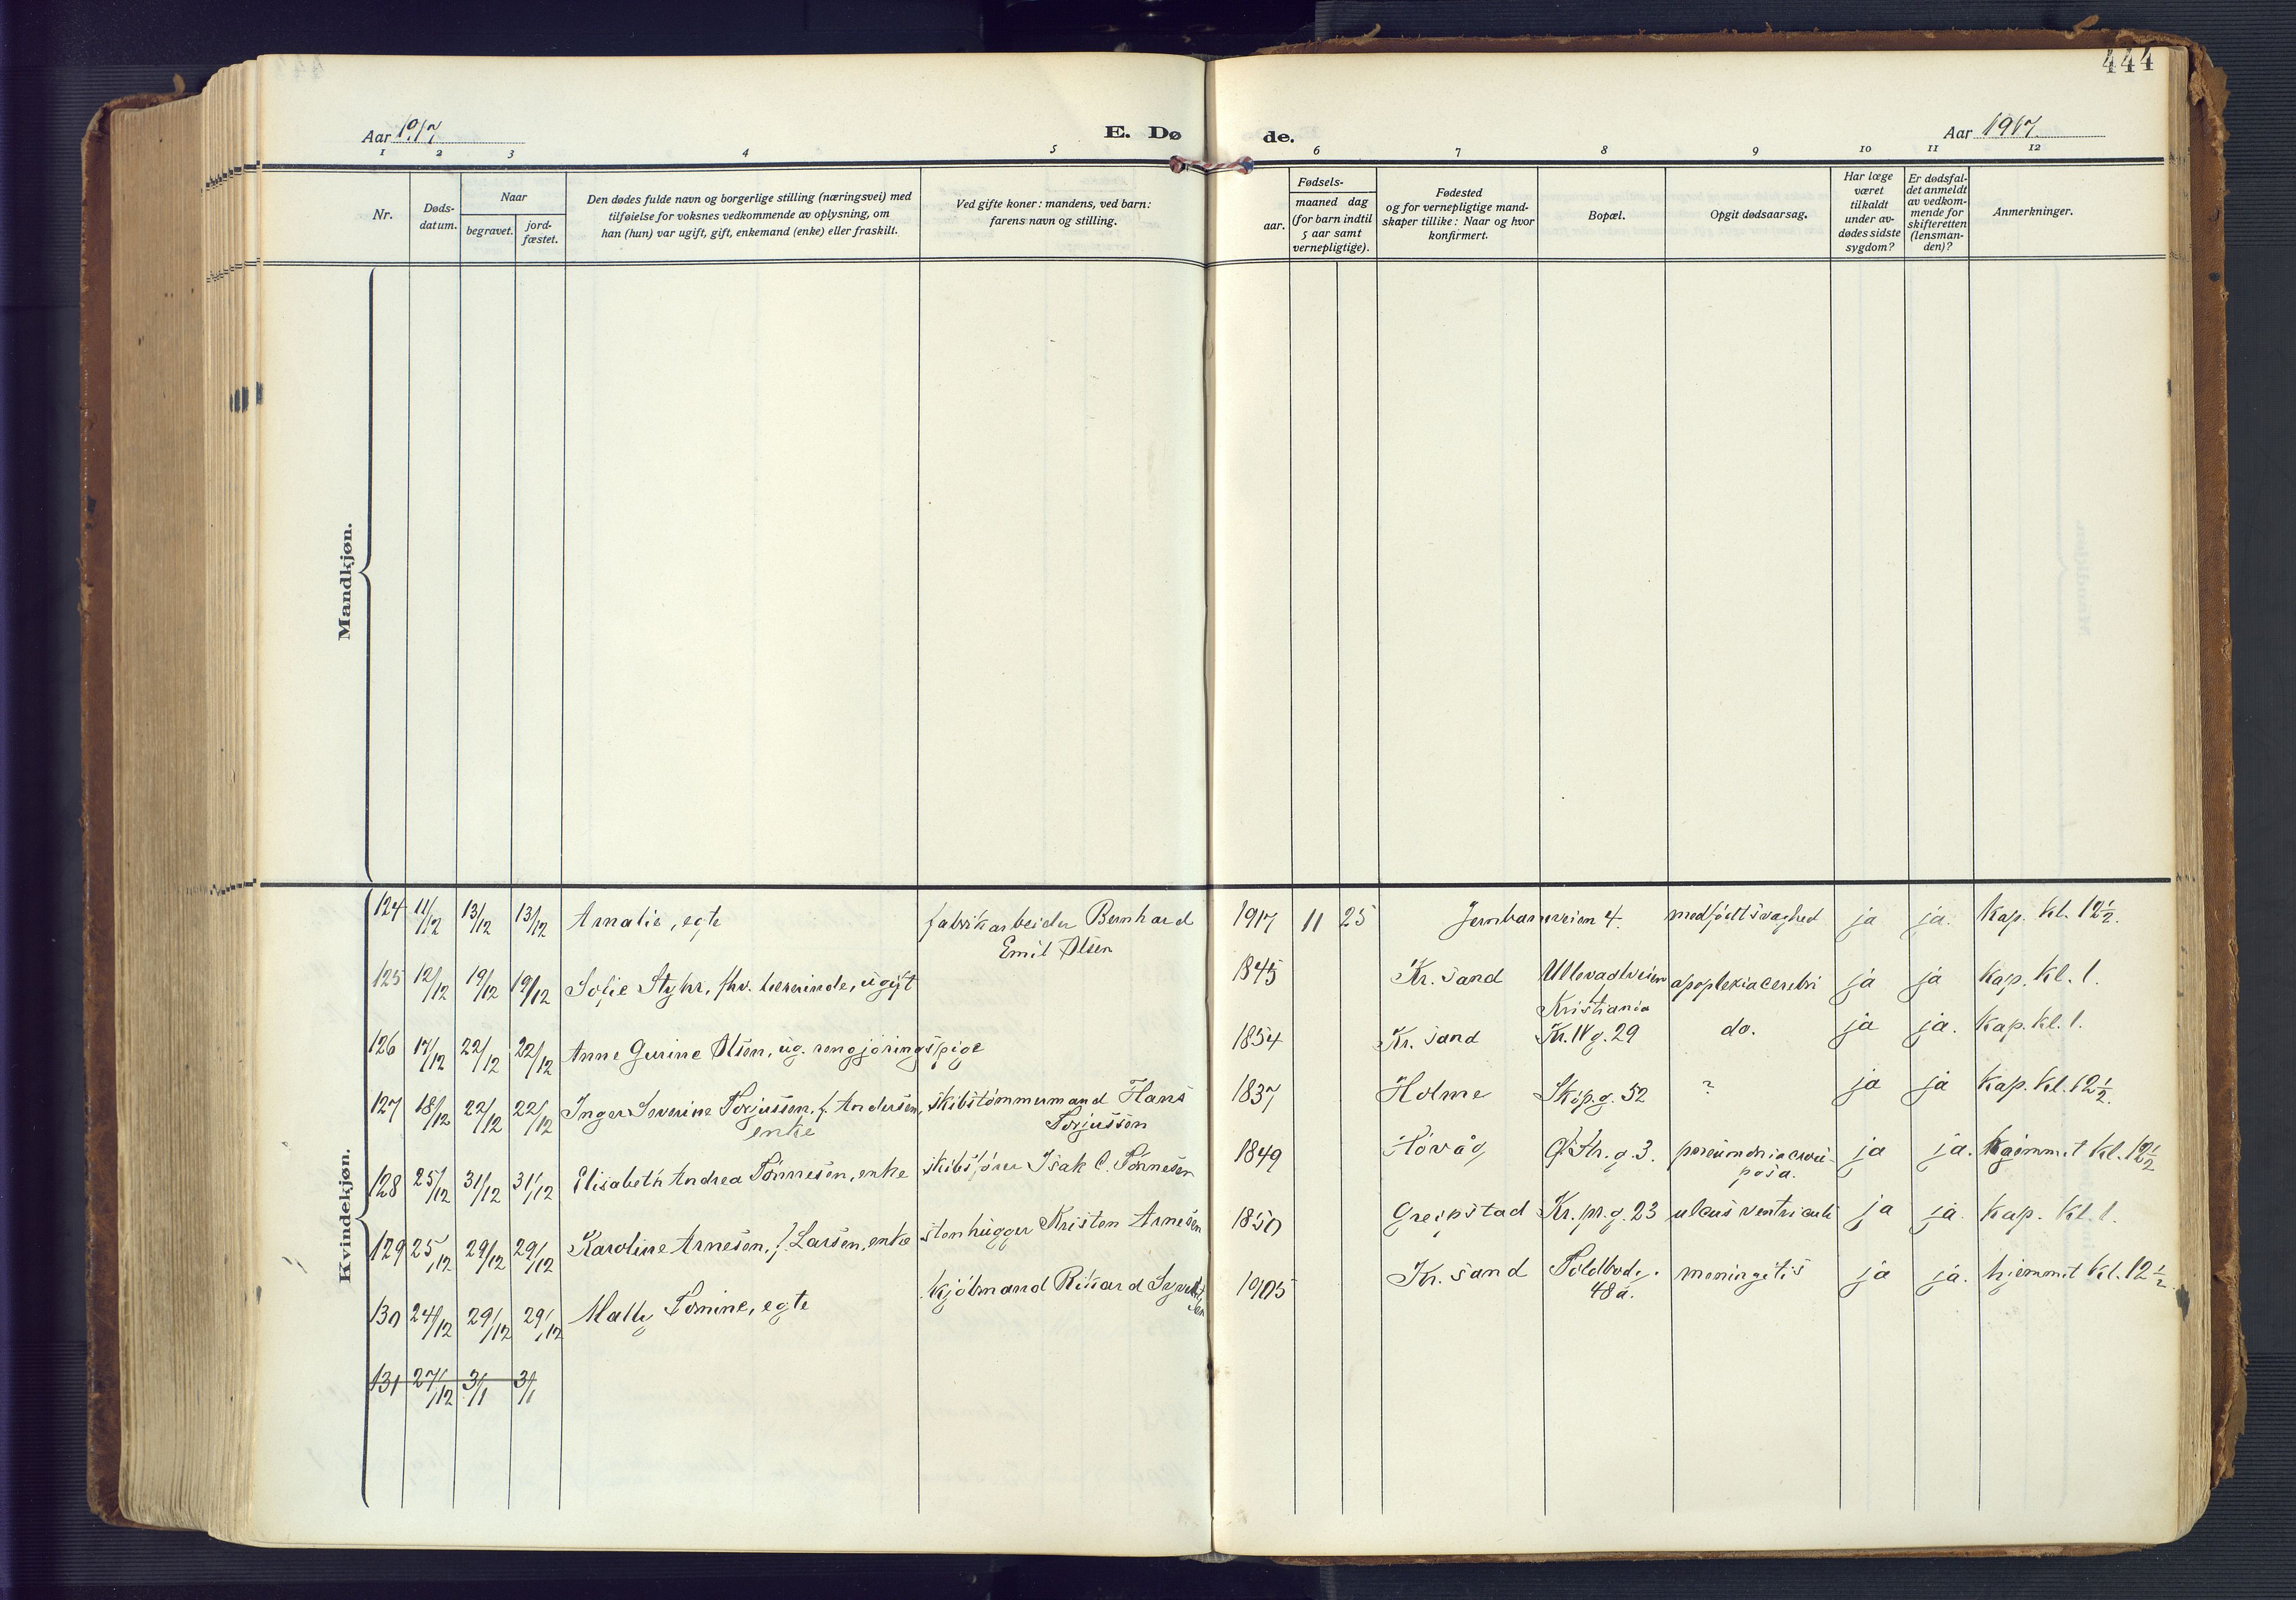 444
Aar 1917
E. Dø
de.
Aar 1917
1 2 3 4 5 6 7 8 9 10 11 12
Nr.
Døds-
datum.
Naar
begravet.
jord-
fæstet.
Den dødes fulde navn og borgerlige stilling (næringsvei) med
tilføielse for voksnes vedkommende av oplysning, om
han (hun) var ugift, gift, enkemand (enke) eller fraskilt.
Ved gifte koner: mandens, ved barn:
farens navn og stilling.
Fødsels-
aar.
maaned dag
(for barn indtil
5 aar samt
vernepligtige).
Fødested
og for vernepligtige mand-
skaper tillike: Naar og hvor
konfirmert.
Bopæl.
Opgit dødsaarsag.
Har læge
været
tilkaldt
under av-
dødes sidste
sygdom?
Er dødsfal-
det anmeldt
av vedkom-
mende for
skifteretten
(lensman-
den)?
Anmerkninger.
Mandkjøn.
Kvindekjøn.
124 11/12 13/12 13/12 Amalie, egte fabrikarbeider Bernhard 1917 11 25 Jernbaneveien 4. medfödt svaghed ja ja. Kap. kl. 12½.
Emil Olsen
125 12/12 19/12 19/12 Sofie Styhr, fhv. lærerinde, ugift 1845 Kr. sand Ullevaalveien apoplexia cerebri ja ja Kap. kl. 1.
Kristiania
126 17/12 22/12 22/12 Anne Gurine Olsen, ug. rengjøringspige 1854 Kr. sand Kr. IV g. 29 do. ja ja. Kap. kl. 1.
127 18/12 22/12 22/12 Inger Severine Torjussen, f. Andersen, skibstømmermand Hans 1837 Holme Skip.g. 52 ? ja ja Kap. kl. 12½.
enke Torjussen
128 25/12 31/12 31/12 Elisabeth Andrea Tönnesen, enke skibsfører Isak C. Tönnesen 1849 Hövåg Str. g. 3. pneumonia crou- ja ja. hjemmet kl. 12½
posa.
129 25/12 29/12 29/12 Karoline Arnesen, f. Larsen, enke stenhugger Kristen Arnesen 1850 Greipstad Kr. pr. g. 23 ulcus ventriculi ja ja. Kap. kl. 1.
130 24/12 29/12 29/12 Mally Tomine, egte kjöbmand Rikard 1905 Kr. sand Toldbodg. meningitis ja ja. hjemmet kl. 12½.
48 a.
131 27/12 3/1 3/1